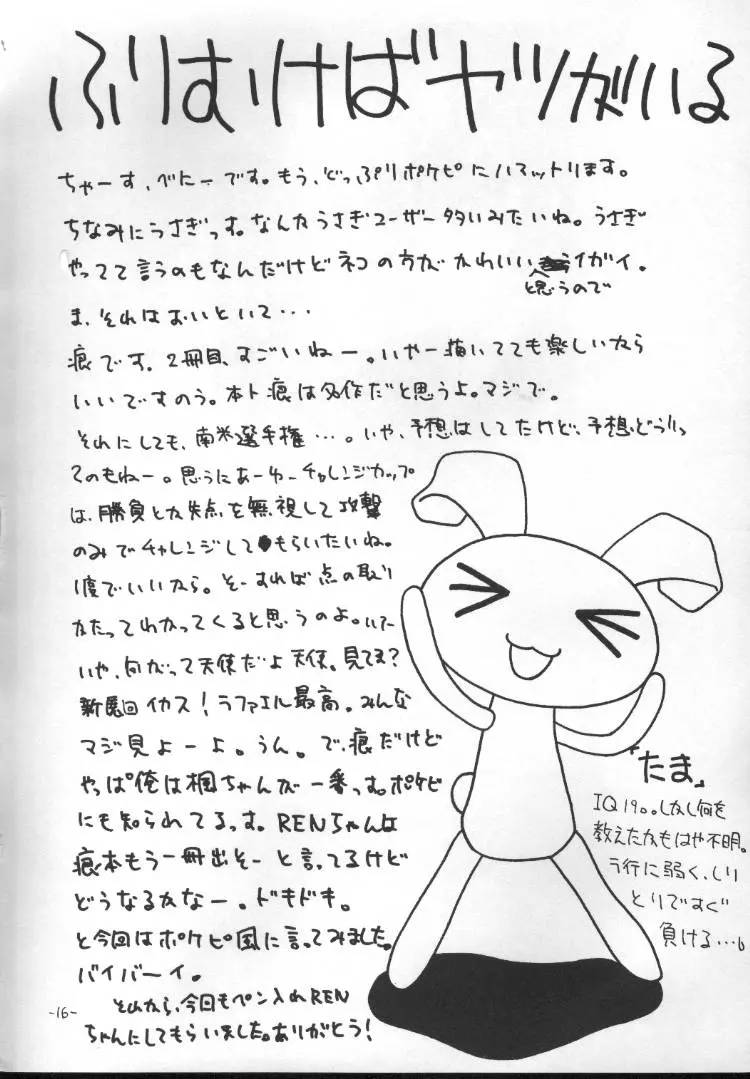 ふりむけばヤツがいる
ちゃーす、べにーです。もう、どっぷりポケピにハマットリます。
ちなみにうさぎっす。なんかうさぎユーザー多いみたいね。うさぎ
やってて言うのもなんだけどネコの方がかわいいイガイ。
と思うので
ま、それはおいといて・・・
痕です。2冊目、すごいねー。いやー描いてても楽しいから
いいですのう。本ト痕は名作だと思うよ。マジで。
それにしても、南米選手権・・・。いや、予想はしてたけど、予想どうりっ
てのもねー。思うにあーゆーチャレンジカップ
は、勝負とか失点を無視して攻撃
のみでチャレンジしてもらいたいね。
1度でいいから。そーすれば点の取り
かたってわかってくると思うのよ。
いや、向かって天使だよ天使。見てる?
新魔回イカス!ラファエル最高。みんな
マジ見よーよ。うん。で、痕だけど
やっぱ俺は楓ちゃんが一番っす。ポケピ
にも知られてるっす。RENちゃんは
痕本もう一冊出そーと言ってるけど
どうなるかなー。ドキドキ。
と今回はポケピ風に言ってみました。
バイバーイ。
それから、今回もペン入れREN
ちゃんにしてもらいました。ありがとう!
「たま」
IQ190。しかし何を
教えたかもはや不明。
ラ行に弱く、しり
とりですぐ
負ける…。
-16-